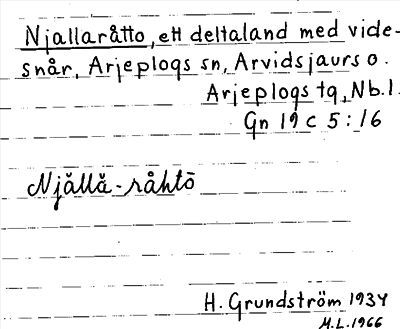 Njallaråtto, ett deltaland med vide-
snår, Arjeplogs sn, Arvidsjaurs o.
Arjeplogs tg, Nb.l.
Gn 19 c 5:16
Njăllă-råhtō
H. Grundström 1934
M.L.1966